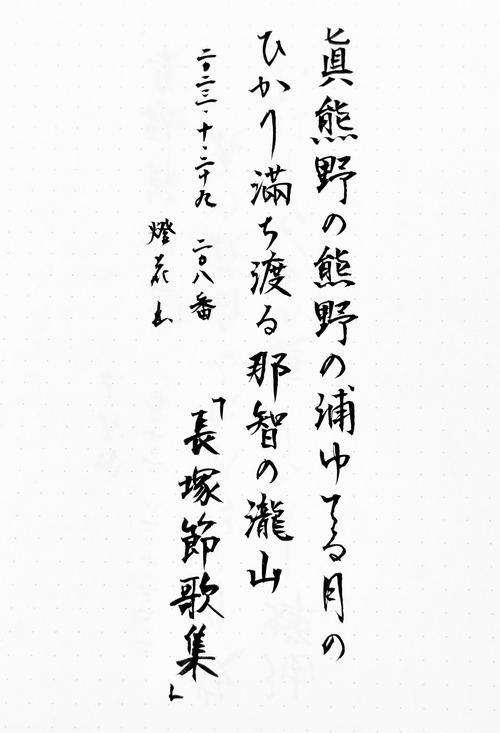 眞熊野の熊野の浦ゆてる月の
ひかり満ち渡る那智の瀧山
二〇二三・十・二十九　二〇八番
「長塚節歌集」
燈花